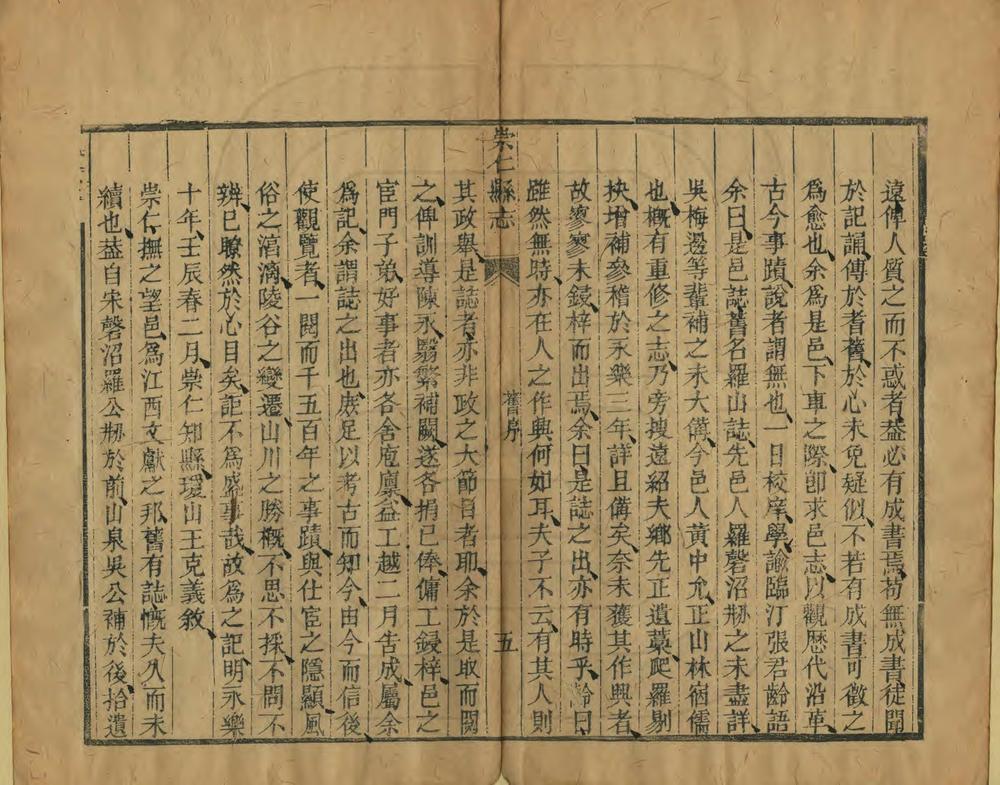 遠俾人質之而不惑者益必有成書焉苟無成書徒聞
於記誦傳於耆舊於心未免疑似不若有成書可徵之
為愈也余為是邑下車之際卽求邑志以觀歷代沿革
古今事蹟說者謂無也一日校庠學諭臨汀張君齡語
余曰是邑誌舊名羅山誌先邑人羅磬沼刱之未盡詳
吳梅邊等輩補之未大備今邑人黃中允正山林宿儒
也槪有重修之志乃旁搜遠紹夫鄉先正遺藁爬羅剔
抉增補參稽於永樂三年詳且備矣奈未獲其作興者
故寥寥未鋟梓而出焉余曰是誌之出亦有時乎齡曰
雖然無時亦在人之作興何如耳夫子不云有其人則
崇仁縣志
舊序
五
其政舉是誌者亦非政之大節目者耶余於是取而閱
之俾訓導陳永翳繁補闕遂各捐已俸傭工鋟梓邑之
宦門子弟好事者亦各舍庖廩益工越二月告成屬余
為記余謂誌之出也庶足以考古而知今由今而信後
使觀覽者一閱而千五百年之事蹟與仕宦之隱顯風
俗之漓滴陵谷之變遷山川之勝槪不思不採不問不
辨已瞭然於心目矣詎不為盛事哉故為之記明永樂
十年壬辰春二月崇仁知縣瓊山王克義敘
崇仁撫之望邑為江西文獻之邦舊有誌慨夫久而未
續也益自宋磬沼羅公刱於前山泉吳公補於後拾遺